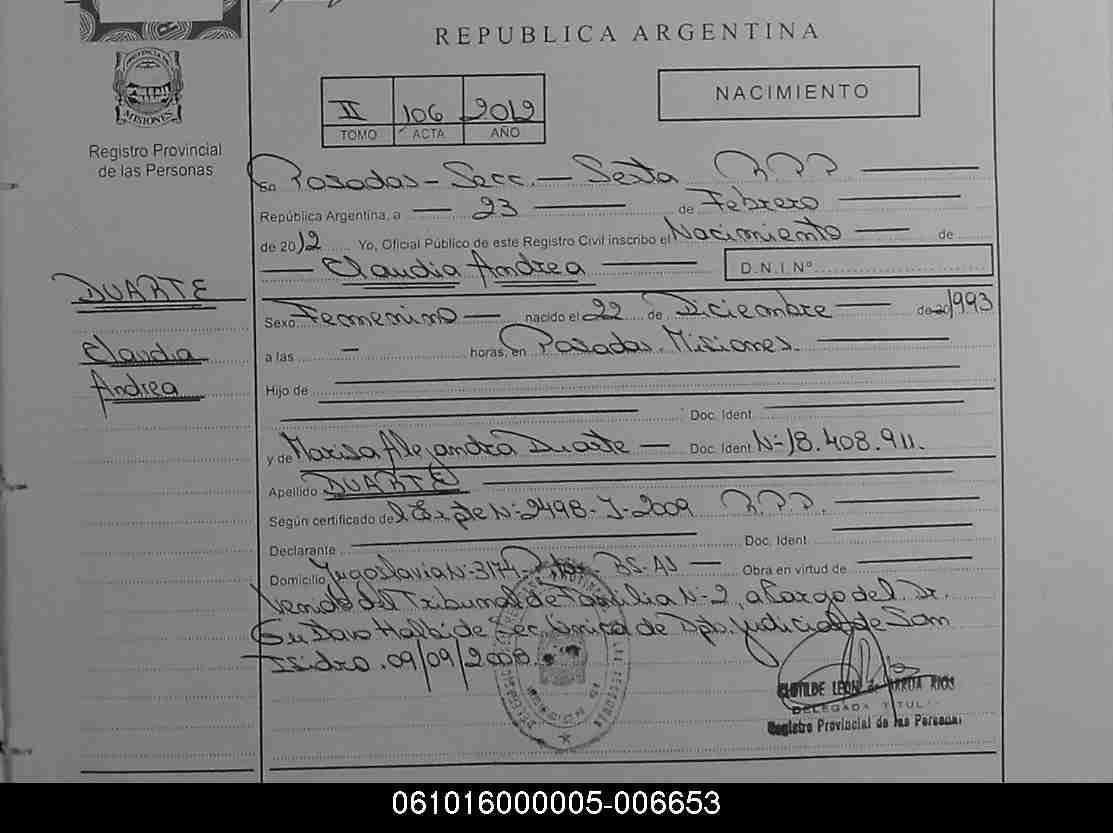 REPUBLICA ARGENTINA
PROVINCIA DE
MISIONES
Registro Provincial
de las Personas
II 106 2012
TOMO ACTA AÑO
NACIMIENTO
En Posadas - Secc. - Sexta R.P.P.
República Argentina, a 23 de Febrero
de 2012 Yo, Oficial Público de este Registro Civil inscribo el Nacimiento de
Claudia Andrea D.N.I Nº
DUARTE
Claudia
Andrea
Sexo Femenino nacido el 22 de Diciembre de 20 1993
a las - horas, en Posadas. Misiones.
Hijo de
Doc. Ident.
y de Marisa Alejandra Duarte - Doc. Ident. Nº 18.408.911.
Apellido DUARTE
Según certificado de Expte Nº 2498-J-2009 R.P.P.
Declarante Doc. Ident.
Domicilio Yugoslavia Nº 3174 BS.AS Obra en virtud de
del Tribunal de Familia Nº 2, a Cargo del Dr.
Gustavo Halbide Sec. Única de Dpto. Judicial de San
Isidro. 09/09/
DELEGADA TITUL
Registro Provincial de las Personas
061016000005-006653